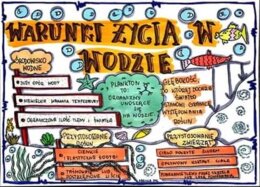 WARUNKI ŻYCIA W
WODZIE
ŚRODOWISKO
WODNE
DUŻY OPÓR WODY
NIEWIELKIE WAHANIA TEMPERATURY
OGRANICZONA ILOŚĆ TLENU I ŚWIATŁA
PLANKTON
TO:
ORGANIZMY
UNOSZĄCE
SIĘ
NA WODZIE
GŁĘBOKOŚĆ,
DO KTÓREJ DOCIERA
ŚWIATŁO
STANOWI GRANICĘ
WYSTĘPOWANIA
ROŚLIN
PRZYSTOSOWANIE
ROŚLIN
CIENKIE
ELASTYCZNE ŁODYGI
TAŚMOWATE LUB
POSTRZĘPIONE
LIŚCIE
PRZYSTOSOWANIE
ZWIERZĄT
CIAŁO POKRYTE ŚLUZEM
OPŁYWOWY KSZTAŁT CIAŁA